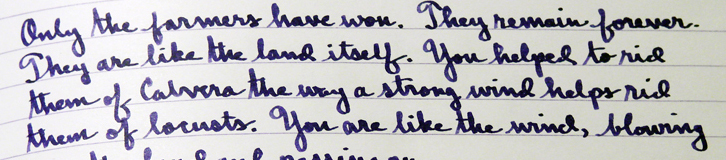 Only the farmers have won. They remain forever.
They are like the land itself. You helped to rid
them of Calvera the way a strong wind helps rid
them of locusts. You are like the wind, blowing